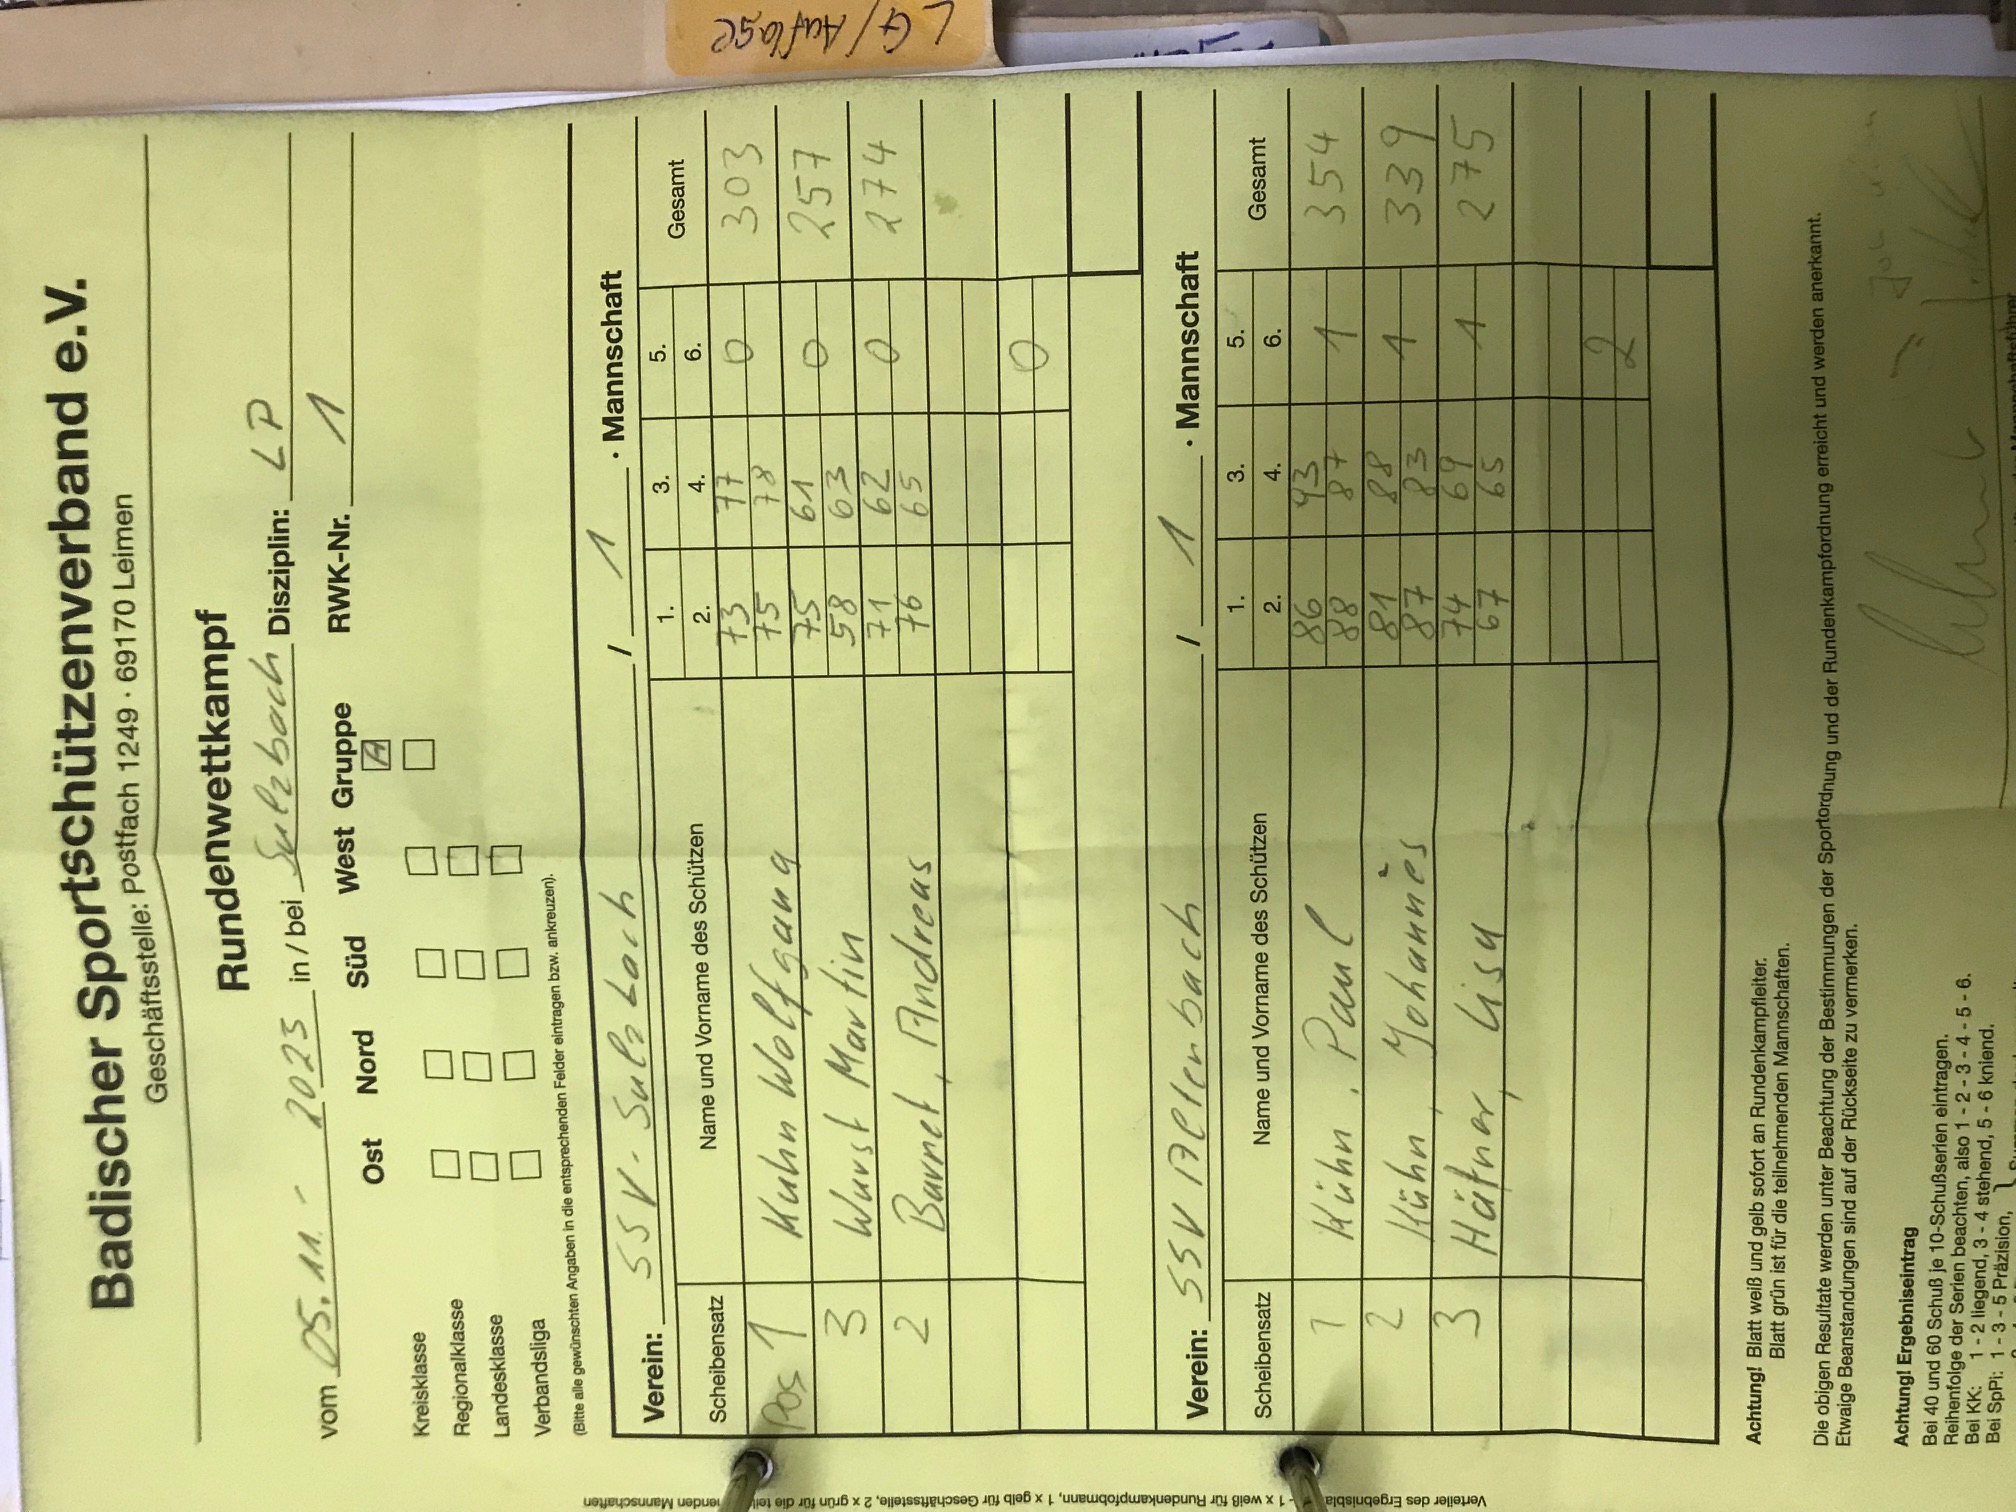 LG/Auflage
Badischer Sportschützenverband e.V.
Geschäftsstelle: Postfach 1249 · 69170 Leimen
Rundenwettkampf
vom 05.11.- 2023 in / bei Sulzbach Disziplin: LP
Ost Nord Süd West Gruppe RWK-Nr. 1
A
Kreisklasse
Regionalklasse
Landesklasse
Verbandsliga
(Bitte alle gewünschten Angaben in die entsprechenden Felder eintragen bzw. ankreuzen).
Verein: SSV-Sulzbach / 1 . Mannschaft
Scheibensatz Name und Vorname des Schützen 1. 3. 5. Gesamt
2. 4. 6.
Pos 1 Kuhn Wolfgang 73 77 0 303
75 78
3 Wurst Martin 75 61 0 257
58 63
2 Barnet, Andreas 71 62 0 274
76 65
0
Verein: SSV Allenbach / 1 . Mannschaft
Scheibensatz Name und Vorname des Schützen 1. 3. 5. Gesamt
2. 4. 6.
1 Kühn, Paul 86 93 1 354
88 87
2 Kühn, Johannes 81 88 1 339
87 83
3 Häfner, Lisa 74 69 1 275
67 65
2
Achtung! Blatt weiß und gelb sofort an Rundenkampfleiter.
Blatt grün ist für die teilnehmenden Mannschaften.
Die obigen Resultate werden unter Beachtung der Bestimmungen der Sportordnung und der Rundenkampfordnung erreicht und werden anerkannt.
Etwaige Beanstandungen sind auf der Rückseite zu vermerken.
Achtung! Ergebniseintrag
Bei 40 und 60 Schuß je 10-Schußserien eintragen.
Reihenfolge der Serien beachten, also 1 - 2 - 3 - 4 - 5 - 6.
Bei KK: 1 - 2 liegend, 3 - 4 stehend, 5 - 6 kniend.
Bei SpPi: 1 - 3 - 5 Präzision,
Verteiler des Ergebnisbla - 1 x weiß für Rundenkampfobmann, 1 x gelb für Geschäftsstelle, 2 x grün für die teil nenden Mannschaften